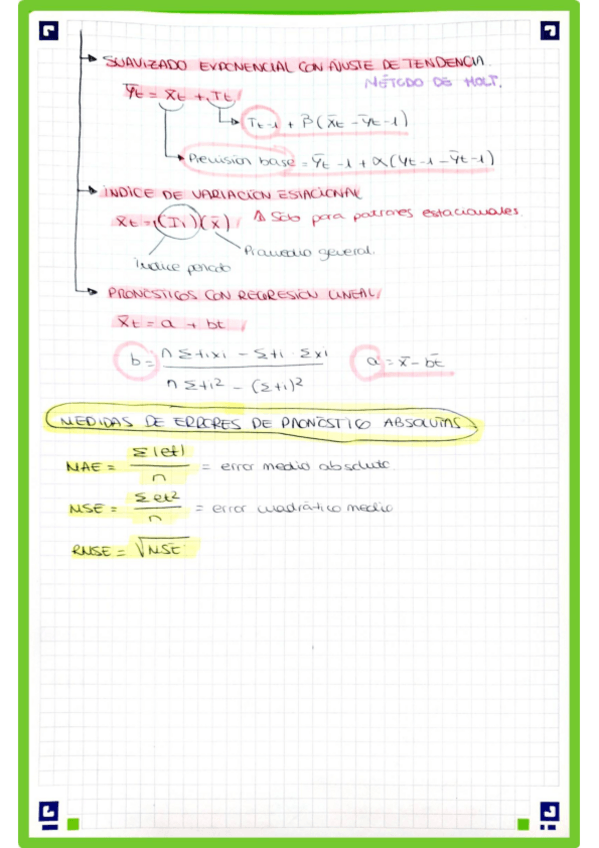 SUAVIZADO EXPONENCIAL CON AJUSTE DE TENDENCIA.
MÉTODO DE HOLT.
Ȳt = X̄t + Tt
Tt-1 + β(X̄t - Ȳt-1)
Previsión base = Ȳt-1 + α(Yt-1 - Ȳt-1)
ÍNDICE DE VARIACIÓN ESTACIONAL
X̄t = (Ii)(x̄) ⚠ Sólo para patrones estacionales.
Promedio general.
Índice periodo
PRONÓSTICOS CON REGRESIÓN LINEAL
X̄t = a + bt
b = n Σtixi - Σti · Σxi / n Σti² - (Σti)²
a = x̄ - bt̄
MEDIDAS DE ERRORES DE PRONÓSTICO ABSOLUTAS
MAE = Σ|et| / n = error medio absoluto
MSE = Σet² / n = error cuadrático medio
RMSE = √MSE